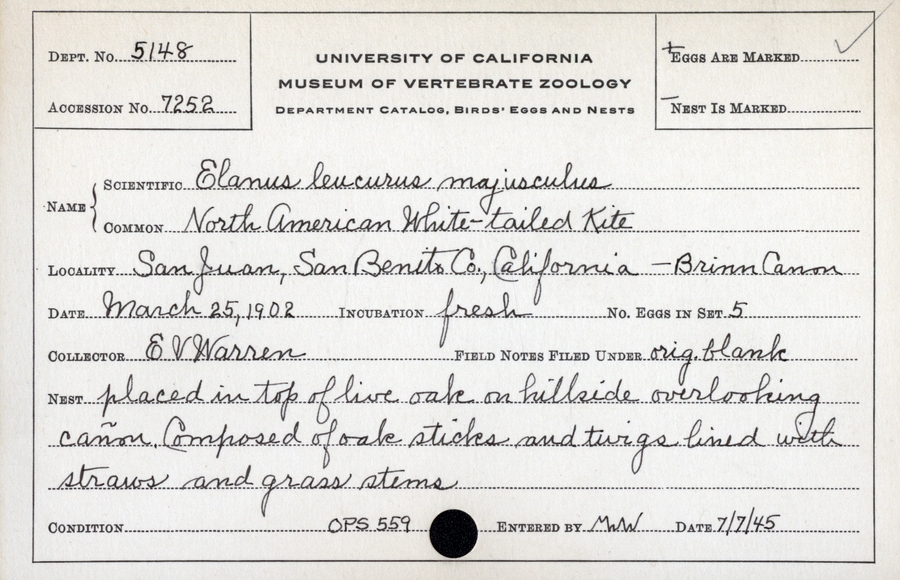 DEPT. NO. 5148
ACCESSION NO. 7252
UNIVERSITY OF CALIFORNIA
MUSEUM OF VERTEBRATE ZOOLOGY
DEPARTMENT CATALOG, BIRDS' EGGS AND NESTS
+ EGGS ARE MARKED
— NEST IS MARKED
NAME
SCIENTIFIC Elanus leucurus majusculus
COMMON North American White-tailed Kite
LOCALITY San Juan, San Benito Co., California — Brinn Canon
DATE March 25, 1902 INCUBATION fresh NO. EGGS IN SET 5
COLLECTOR E V Warren FIELD NOTES FILED UNDER orig. blank
NEST placed in top of live oak on hillside overlooking
cañon. Composed of oak sticks and twigs lined with
straws and grass stems
CONDITION OPS 559 ENTERED BY MWW DATE 7/7/45